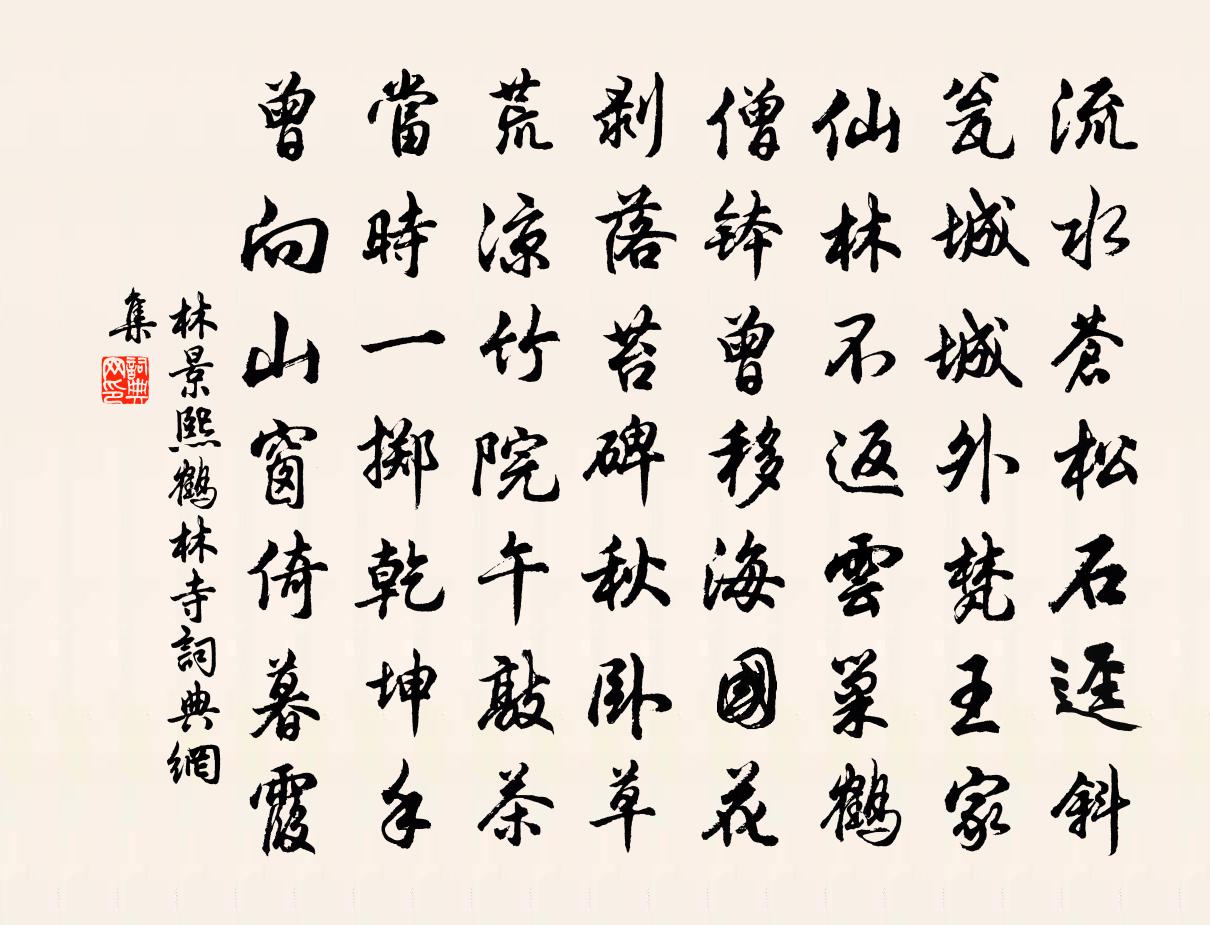 流水蒼松石逕斜
瓮城城外梵王家
仙林不返雲巢鶴
僧鉢曾移海國花
剥落苔碑秋臥草
荒涼竹院午敲茶
當時一擲乾坤手
曾向山窗倚暮霞
林景熙鶴林寺詞典網
集
詞典
网印